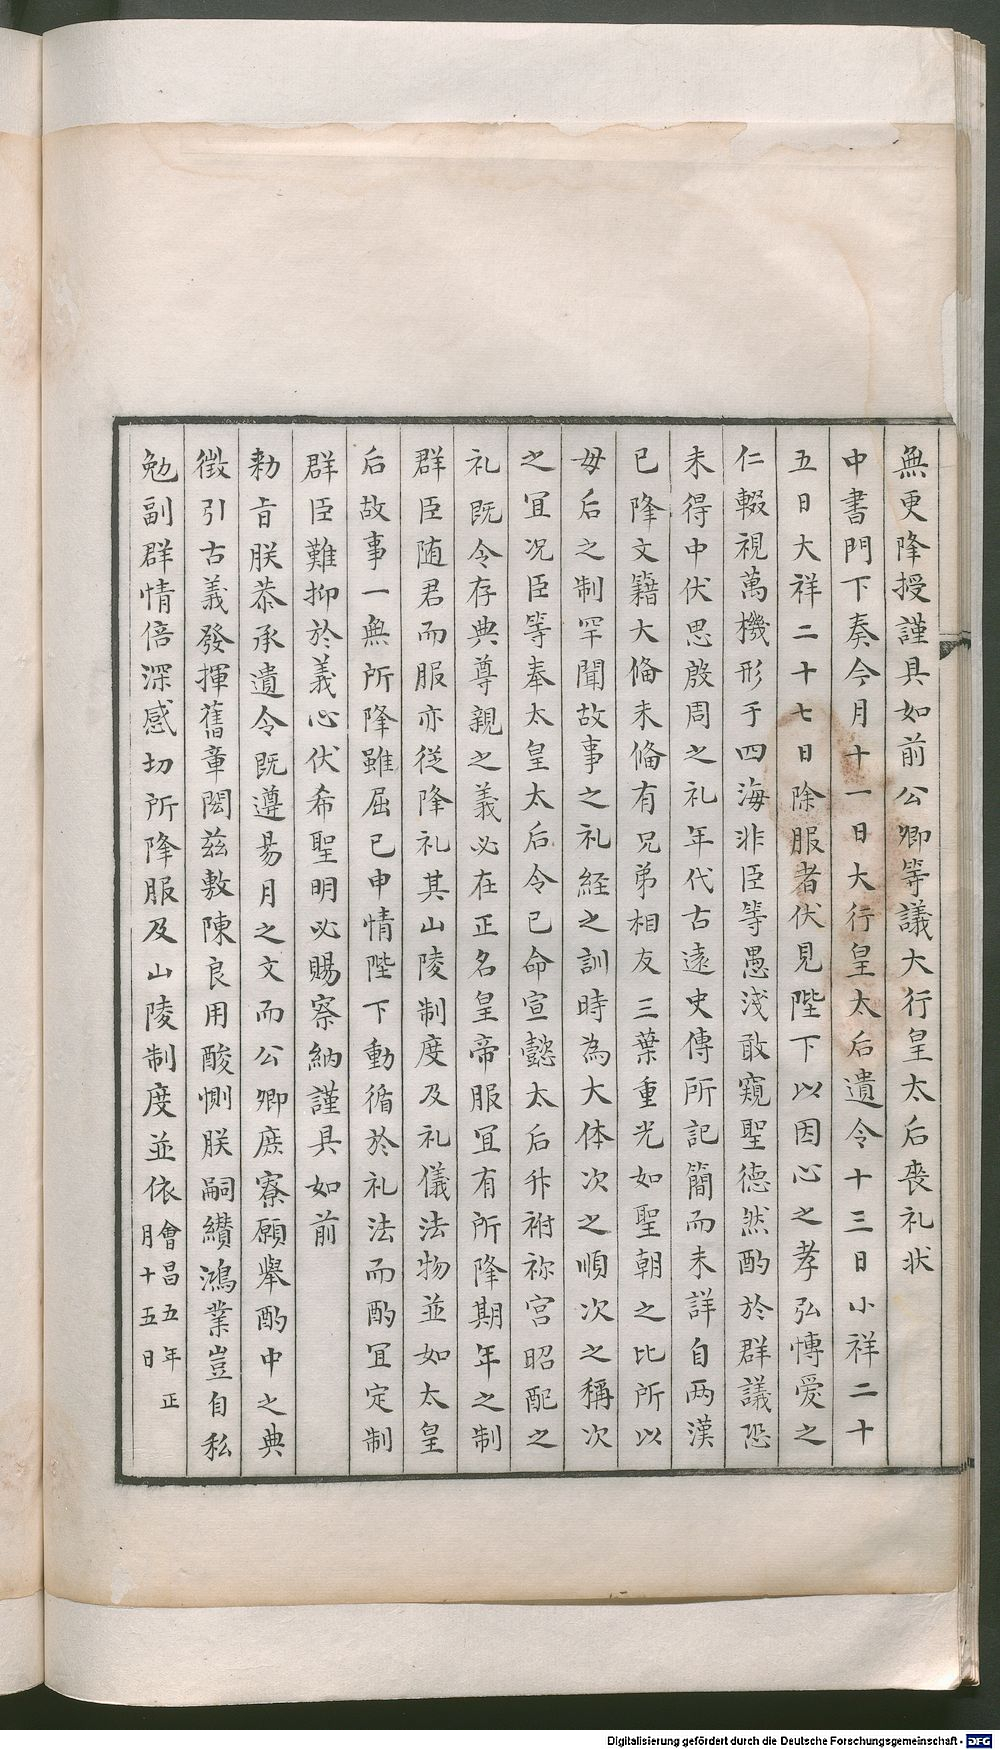 無更降授謹具如前公卿等議大行皇太后喪礼状
中書門下奏今月十一日大行皇太后遺令十三日小祥二十
五日大祥二十七日除服者伏見陛下以因心之孝弘愽愛之
仁輟視萬機形于四海非臣等愚淺敢窺聖德然酌於群議恐
未得中伏思殷周之礼年代古遠史傳所記簡而未詳自两漢
已降文籍大俻未俻有兄弟相友三葉重光如聖朝之比所以
母后之制罕聞故事之礼経之訓時為大体次之順次之稱次
之宜况臣等奉太皇太后令已命宣懿太后升祔祢宮昭配之
礼既令存典尊親之義必在正名皇帝服宜有所降期年之制
群臣随君而服亦従降礼其山陵制度及礼儀法物並如太皇
后故事一無所降雖屈已申情陛下動循於礼法而酌宜定制
群臣難抑於義心伏希聖明必賜察納謹具如前
勅旨朕恭承遺令既遵易月之文而公卿庶寮願舉酌中之典
徴引古義發揮舊章閲茲敷陳良用酸惻朕嗣纘鴻業豈自私
勉副群情倍深感切所降服及山陵制度並依會昌五年正
月十五日
Digitalisierung gefördert durch die Deutsche Forschungsgemeinschaft - DFG